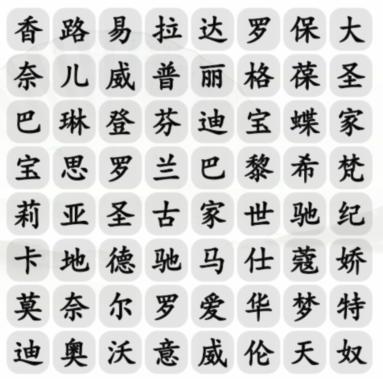 香路易拉达罗保大
奈儿威普丽格葆圣
巴琳登芬迪宝蝶家
宝思罗兰巴黎希梵
莉亚圣古家世驰纪
卡地德驰马仕蔻娇
莫奈尔罗爱华梦特
迪奥沃意威伦天奴